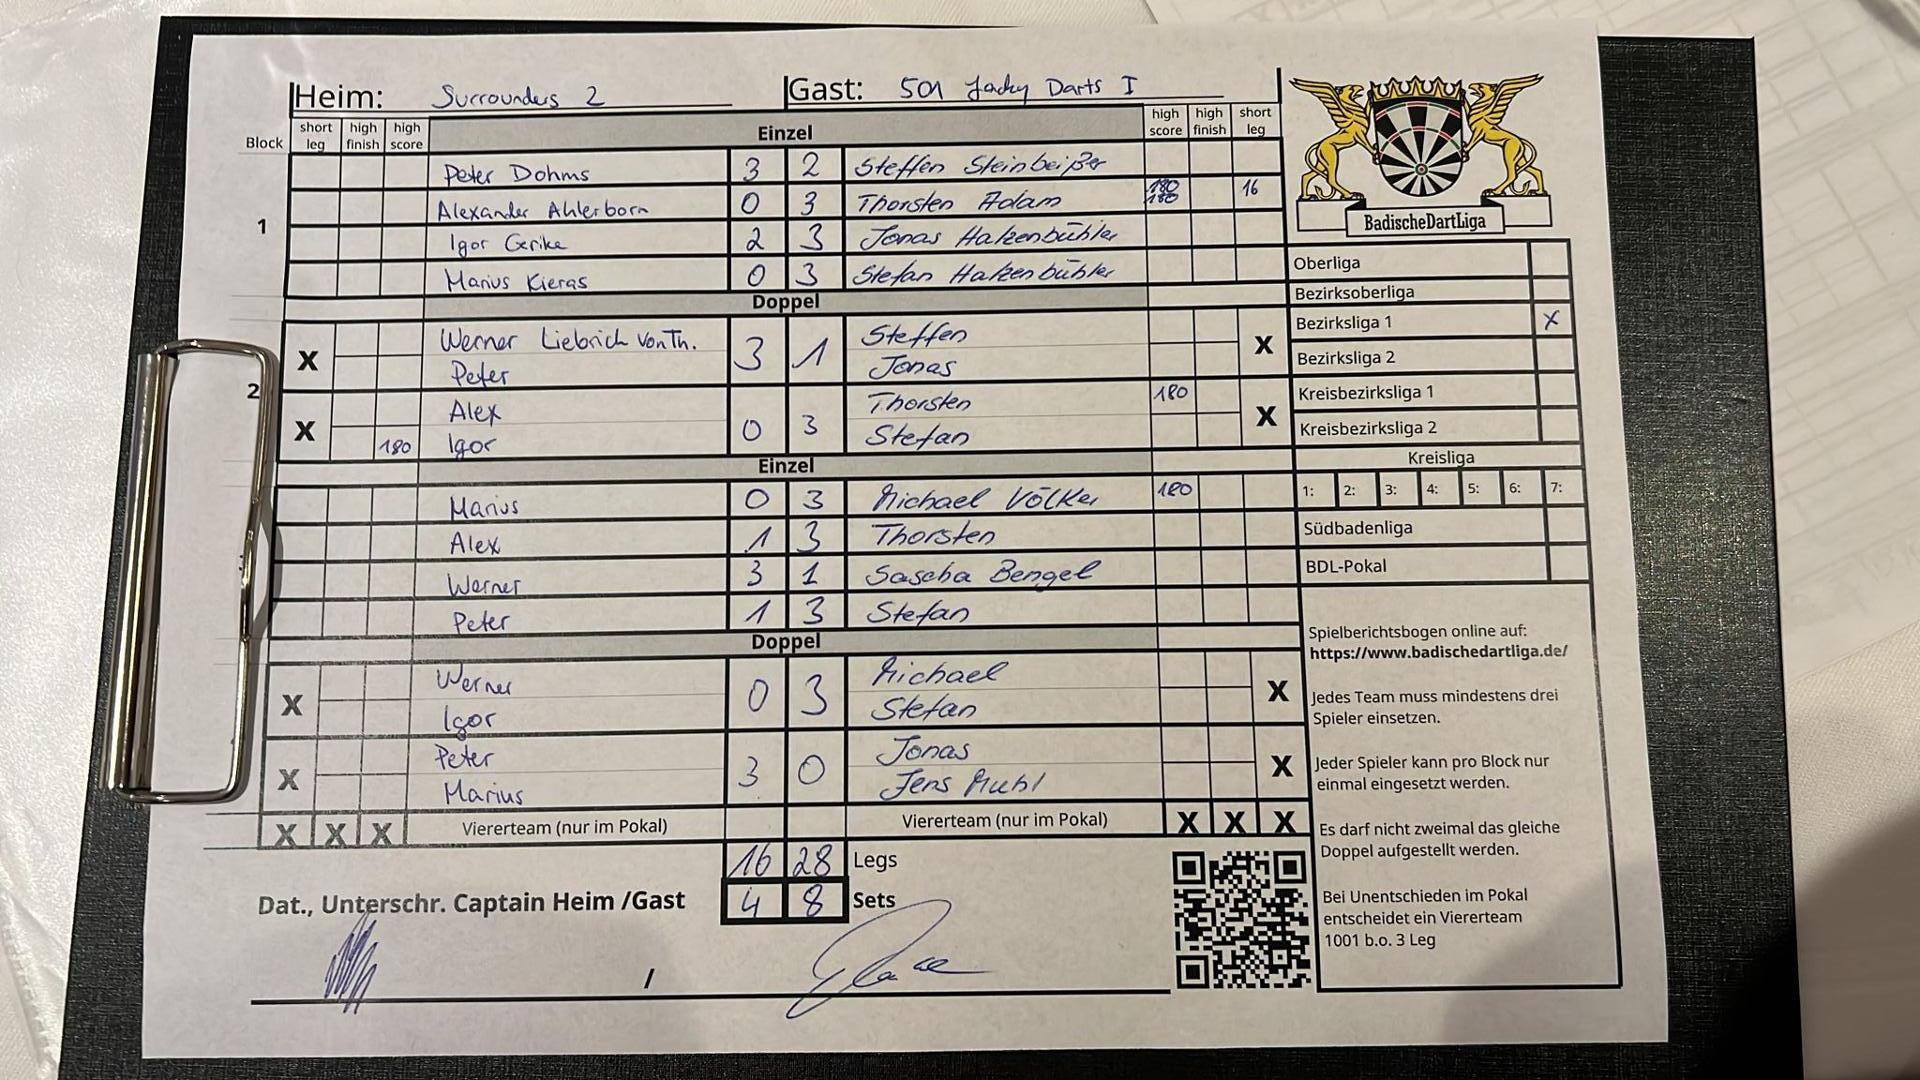 Heim: Surrounders 2 Gast: 501 Jacky Darts I
Block short leg high finish high score Einzel high score high finish short leg
1
Peter Dohms 3 2 Steffen Steinbeißer
Alexander Ahlerborn 0 3 Thorsten Adam 180 180 16
Igor Gerike 2 3 Jonas Hatzenbühler
Marius Kieras 0 3 Stefan Hatzenbühler
Doppel
2
X Werner Liebrich von Th. 3 1 Steffen X
Peter Jonas
X Alex 0 3 Thorsten 180 X
180 Igor Stefan
Einzel
Marius 0 3 Michael Völker 180
Alex 1 3 Thorsten
Werner 3 1 Sascha Bengel
Peter 1 3 Stefan
Doppel
X Werner 0 3 Michael X
Igor Stefan
X Peter 3 0 Jonas X
Marius Jens Muhl
X X X Viererteam (nur im Pokal) Viererteam (nur im Pokal) X X X
16 28 Legs
Dat., Unterschr. Captain Heim /Gast 4 8 Sets
/
BadischeDartLiga
Oberliga
Bezirksoberliga
Bezirksliga 1 X
Bezirksliga 2
Kreisbezirksliga 1
Kreisbezirksliga 2
Kreisliga
1: 2: 3: 4: 5: 6: 7:
Südbadenliga
BDL-Pokal
Spielberichtsbogen online auf:
https://www.badischedartliga.de/
Jedes Team muss mindestens drei
Spieler einsetzen.
Jeder Spieler kann pro Block nur
einmal eingesetzt werden.
Es darf nicht zweimal das gleiche
Doppel aufgestellt werden.
Bei Unentschieden im Pokal
entscheidet ein Viererteam
1001 b.o. 3 Leg